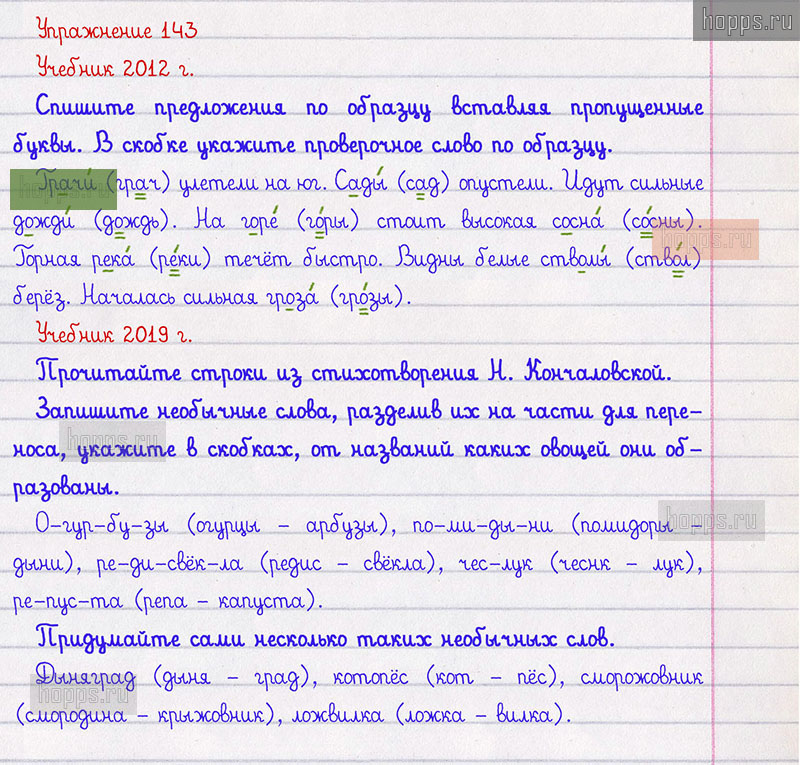 hopps.ru
Упражнение 143
Учебник 2012 г.
Спишите предложения по образцу вставляя пропущенные
буквы. В скобке укажите проверочное слово по образцу.
Грачи́ (грач) улетели на юг. Сады́ (сад) опустели. Идут сильные
дожди́ (дождь). На горе́ (го́ры) стоит высокая сосна́ (со́сны).
Горная река́ (ре́ки) течёт быстро. Видны белые стволы́ (ство́л)
берёз. Началась сильная гроза́ (гро́зы).
Учебник 2019 г.
Прочитайте строки из стихотворения Н. Кончаловской.
Запишите необычные слова, разделив их на части для пере-
носа, укажите в скобках, от названий каких овощей они об-
разованы.
О-гур-бу-зы (огурцы - арбузы), по-ми-ды-ни (помидоры -
дыни), ре-ди-свёк-ла (редис - свёкла), чес-лук (чеснк - лук),
ре-пус-та (репа - капуста).
Придумайте сами несколько таких необычных слов.
Дыняград (дыня - град), котопёс (кот - пёс), сморожовник
(смородина - крыжовник), ложвилка (ложка - вилка).
hopps.ru
hopps.ru
hopps.ru
hopps.ru
hopps.ru